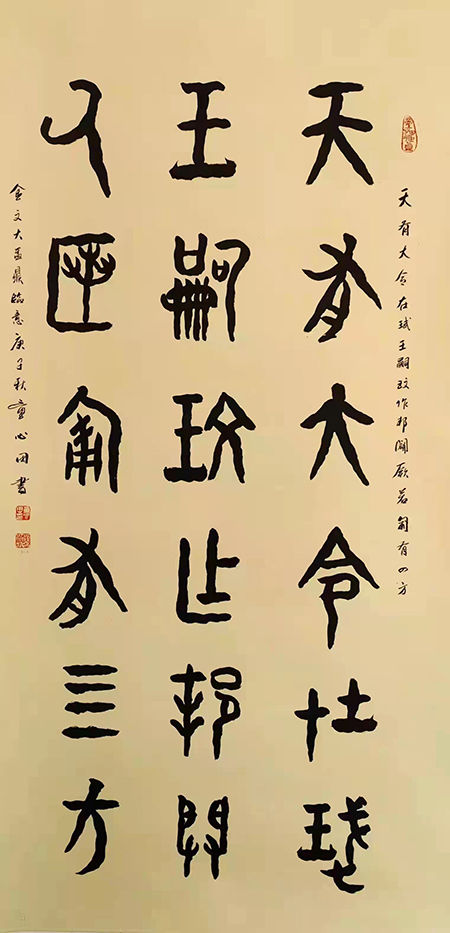 天有大令在珷王嗣玟作邦闢厥若匍有四方
天有大令在珷
王嗣玟乍邦闢
厥匿匍有三方
金文大盂鼎臨意庚子秋童心田書